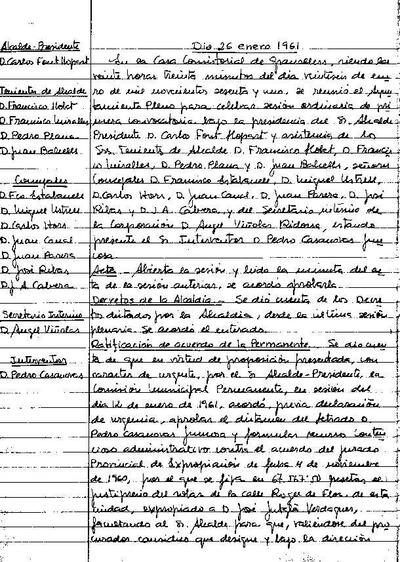 Alcalde-Presidente
D. Carlos Font Llopart
Tenientes de Alcalde
D. Francisco Llobet
D. Francisco Miralles
D. Pedro Plana
D. Juan Balcells
Concejales
D. Fco. Estabanell
D. Miguel Ustrell
D. Carlos Hors
D. Juan Canal
D. Juan Parera
D. José Ribas
D. J. A. Calvera
Secretario Interino
D. Angel Viñolas
Interventor
D. Pedro Casanovas
Dia 26 enero 1961
En la Casa Consistorial de Granollers, siendo las
veinte horas treinta minutos del dia veintiseis de ene-
ro de mil novecientos sesenta y uno, se reunió el Ayun-
tamiento Pleno para celebrar sesión ordinaria de pri-
mera convocatoria bajo la presidencia del Sr. Alcalde
Presidente D. Carlos Font Llopart y asistencia de los
Srs. Teniente de Alcalde D. Francisco Llobet, D. Francis-
co Miralles, D. Pedro Plana y D. Juan Balcells, señores
Concejales D. Francisco Estabanell, D. Miguel Ustrell,
D. Carlos Hors, D. Juan Canal, D. Juan Parera, D. José
Ribas y D. J. A. Calvera, y del Secretario interino de
la Corporación D. Angel Viñolas Ridorsa, estando
presente el Sr. Interventor D. Pedro Casanovas Jun-
cosa.
Acta.- Abierta la sesión y leida la minuta del ac-
ta de la sesión anterior, se acordó aprobarla.
Decretos de la Alcaldia.- Se dió cuenta de los Decre-
tos dictados por la Alcaldia, desde la última sesión
plenaria. Se acordó el enterado.
Ratificación de acuerdo de la Permanente.- Se dió cuen-
ta de que en virtud de proposición presentada, con
caracter de urgente, por el Sr. Alcalde-Presidente, la
Comisión Municipal Permanente, en sesión del
dia 12 de enero de 1961, acordó, previa declaración
de urgencia, aprobar el dictamen del letrado D.
Pedro Casanovas Juncosa y formular recurso conten-
cioso administrativo contra el acuerdo del Jurado
Provincial de Expropiación de fecha 4 de noviembre
de 1960, por el que se fija en 67.757'50 pesetas el
justiprecio del solar de la calle Roger de Flor, de esta
ciudad, expropiado a D. José Verdaguer,
facultando al Sr. Alcalde para que, valiendose del pro-
curador causidico que designe y bajo la dirección